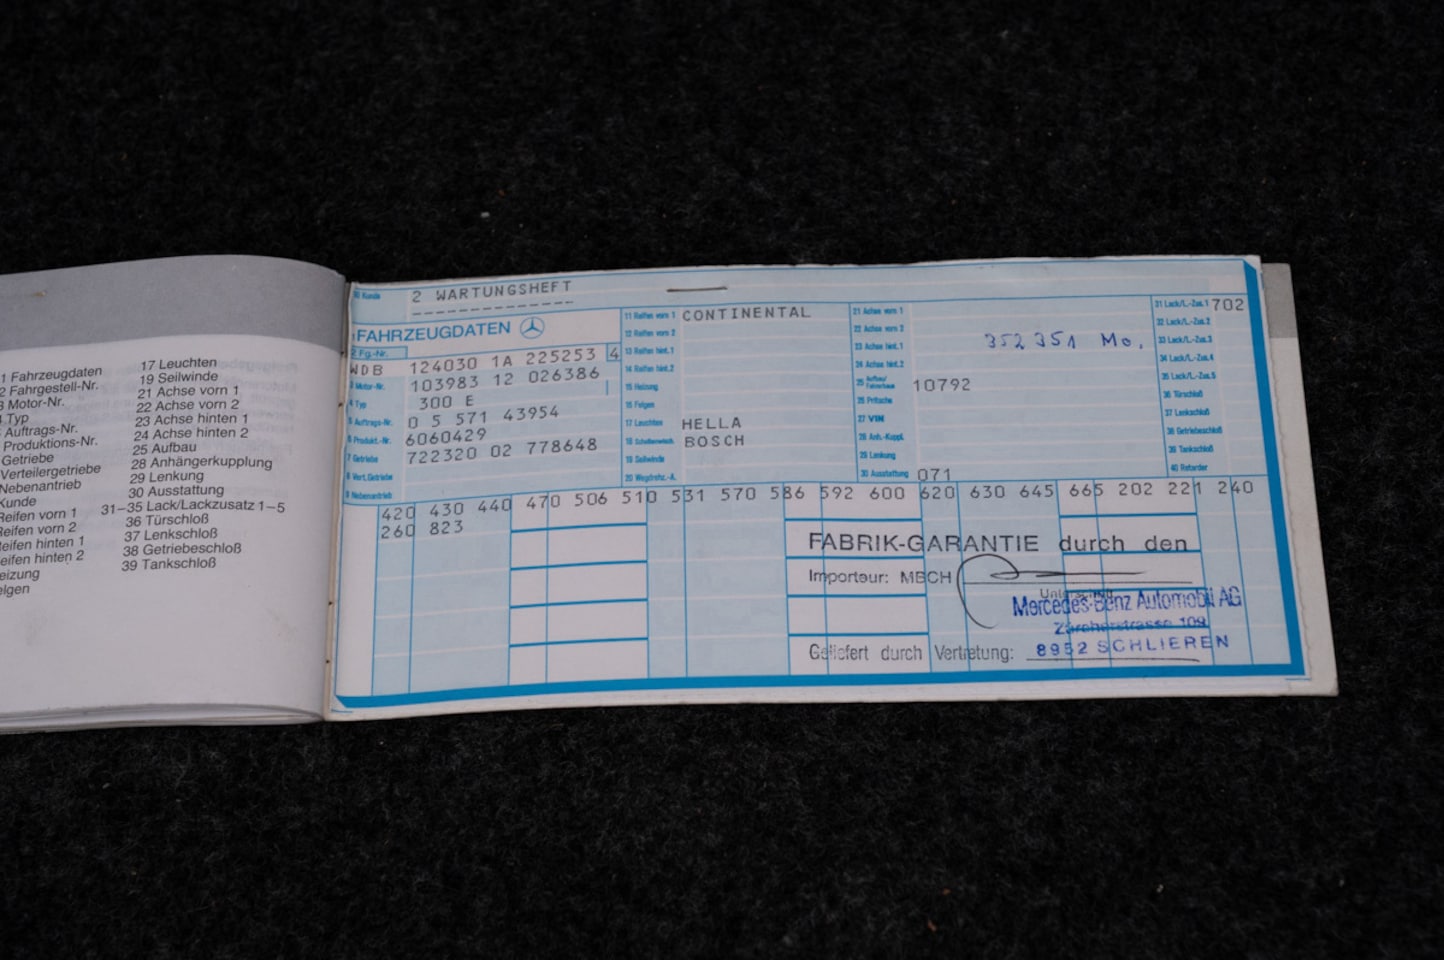 1 Fahrzeugdaten
2 Fahrgestell-Nr.
3 Motor-Nr.
Typ
Auftrags-Nr.
Produktions-Nr.
Getriebe
Verteilergetriebe
Nebenantrieb
Kunde
Reifen vorn 1
Reifen vorn 2
Reifen hinten 1
Reifen hinten 2
eizung
elgen
17 Leuchten
19 Seilwinde
21 Achse vorn 1
22 Achse vorn 2
23 Achse hinten 1
24 Achse hinten 2
25 Aufbau
28 Anhängerkupplung
29 Lenkung
30 Ausstattung
31–35 Lack/Lackzusatz 1–5
36 Türschloß
37 Lenkschloß
38 Getriebeschloß
39 Tankschloß
10 Kunde 2 WARTUNGSHEFT
1 FAHRZEUGDATEN
2 Fg.-Nr.
WDB 124030 1A 225253 4
3 Motor-Nr. 103983 12 026386
4 Typ 300 E
5 Auftrags-Nr. 0 5 571 43954
6 Produkt.-Nr. 6060429
7 Getriebe 722320 02 778648
8 Vert.Getriebe
9 Nebenantrieb
11 Reifen vorn 1 CONTINENTAL
12 Reifen vorn 2
13 Reifen hint.1
14 Reifen hint.2
15 Heizung
16 Felgen
17 Leuchten HELLA
18 Scheibenwisch. BOSCH
19 Seilwinde
20 Wegdrehz.-A.
21 Achse vorn 1
22 Achse vorn 2
23 Achse hint.1 352 351 Mo.
24 Achse hint.2
25 Aufbau/Fahrerhaus 10792
26 Pritsche
27 VIN
28 Anh.-Kuppl.
29 Lenkung
30 Ausstattung 071
31 Lack/L.-Zus.1 702
32 Lack/L.-Zus.2
33 Lack/L.-Zus.3
34 Lack/L.-Zus.4
35 Lack/L.-Zus.5
36 Türschloß
37 Lenkschloß
38 Getriebeschloß
39 Tankschloß
40 Retarder
420 430 440 470 506 510 531 570 586 592 600 620 630 645 665 202 221 240
260 823
FABRIK-GARANTIE durch den
Importeur: MBCH
Unterschrift
Mercedes-Benz Automobil AG
Zürcherstrasse 109
Geliefert durch Vertretung: 8952 SCHLIEREN